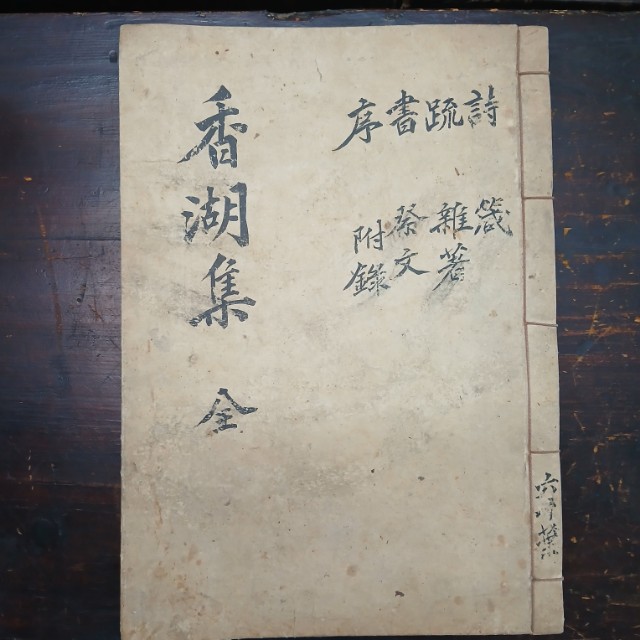 詩 疏 書 序
箴 雜著 祭文 附錄
香湖集 全